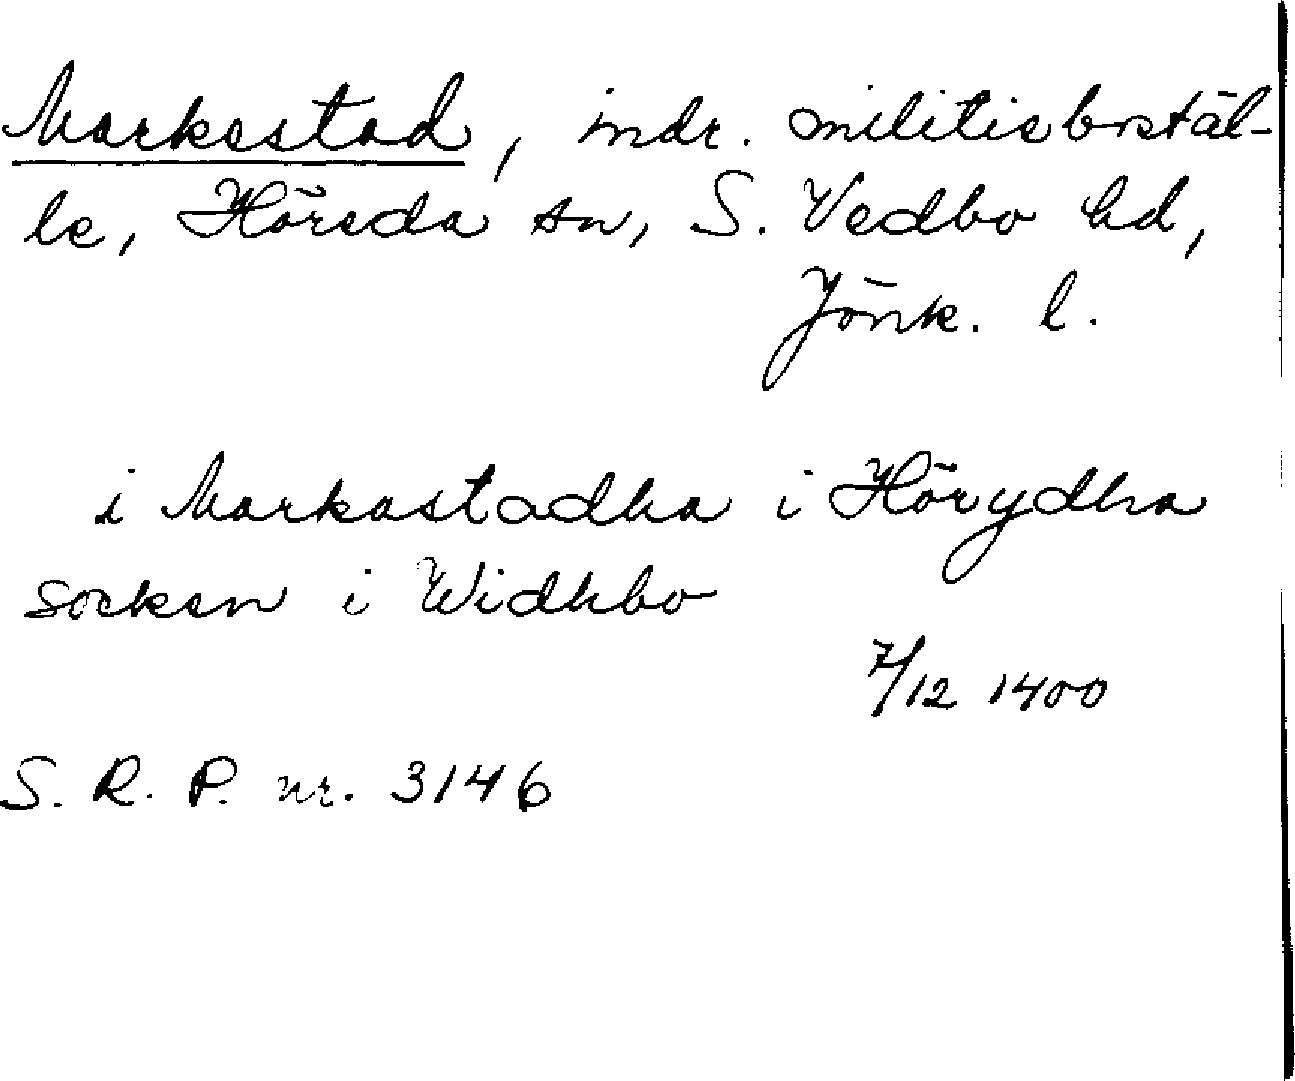 Markestad, indr. militiebostäl-
le, Höreda sn, S. Vedbo hd,
Jönk. l.
i Markastadha i Hörydha
socken i Widhbo
7/12 1400
S. R. P. nr. 3146